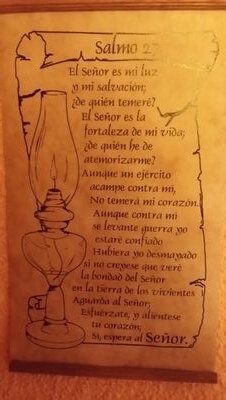 Salmo 27
El Señor es mi luz
y mi salvación;
¿de quién temeré?
El Señor es la
fortaleza de mi vida;
¿de quién he de
atemorizarme?
Aunque un ejército
acampe contra mi,
No temerá mi corazón.
Aunque contra mi
se levante guerra yo
estaré confiado
Hubiera yo desmayado
si no creyese que veré
la bondad del Señor
en la tierra de los vivientes
Aguarda al Señor;
Esfuérzate, y aliéntese
tu corazón;
Si, espera al Señor.